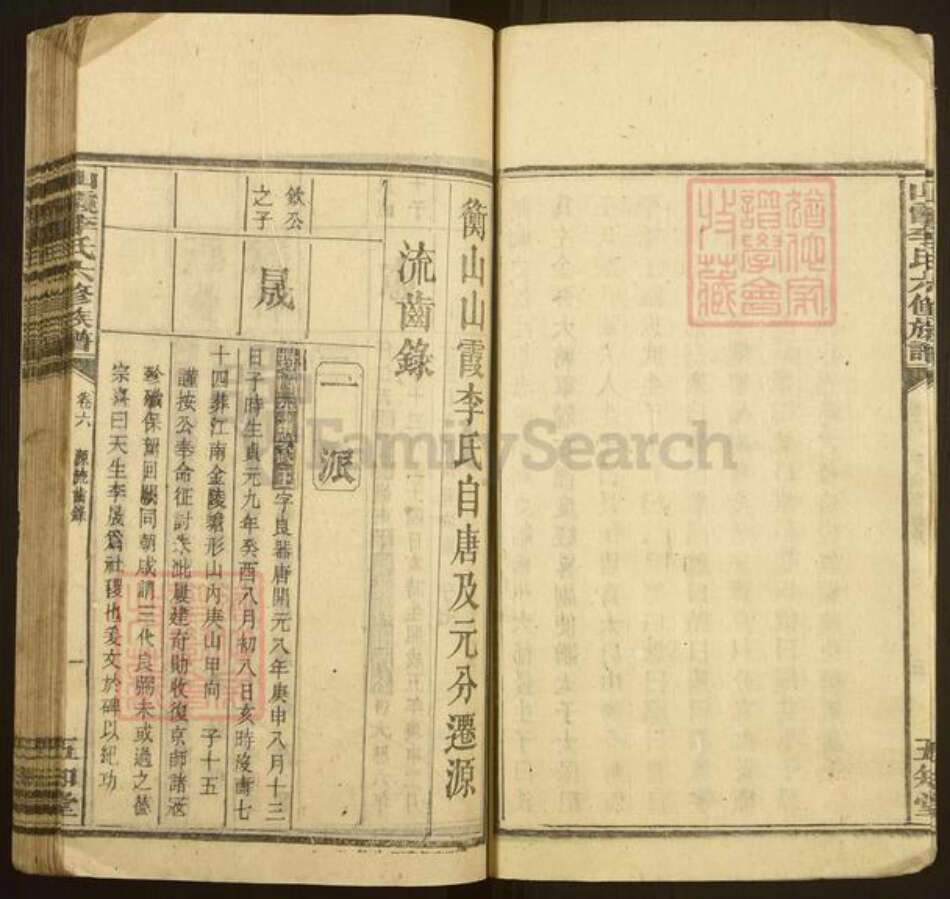 山霞李氏六修族譜
五知堂
衡山山霞李氏自唐及元分遷源
流齒錄
一派
欽公
之子
晟
字良器唐開元八年庚申八月十三
日子時生貞元九年癸酉八月初八日亥時歿壽七
十四葬江南金陵形山內庚山甲向 子十五
謹按公奉命征討朱泚屢建奇勛收復京師諸
殄殲保駕回闕同朝咸謂三代良將未或過之
宗喜曰天生李晟爲社稷也爰文於碑以紀功
山霞李氏六修族譜
卷六
源流齒錄
一
五知堂
FamilySearch